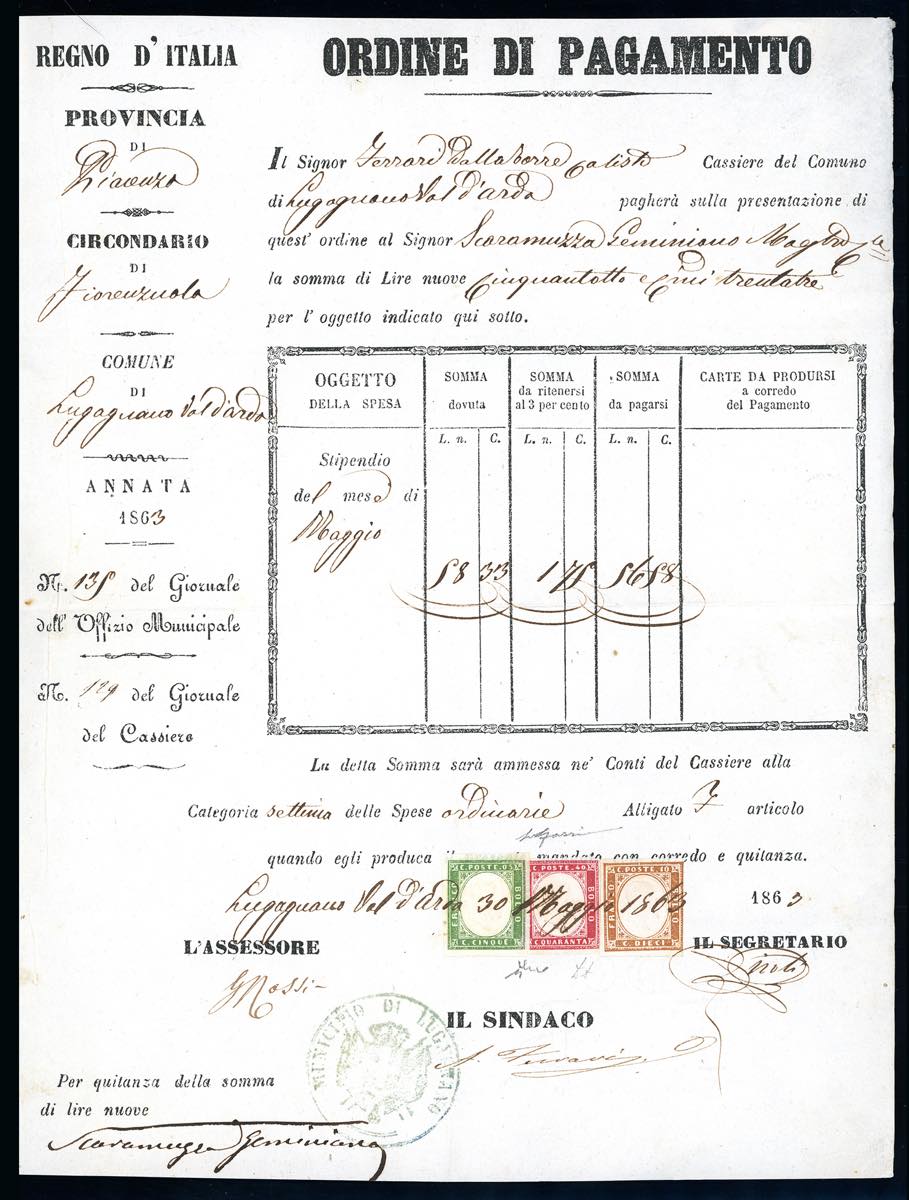 REGNO D'ITALIA
PROVINCIA
DI
Piacenza
CIRCONDARIO
DI
Fiorenzuola
COMUNE
DI
Lugagnano Val d'arda
ANNATA
1863
N. 135 del Giornale
dell' Offizio Municipale
N. 129 del Giornale
del Cassiere
ORDINE DI PAGAMENTO
Il Signor Ferrari Dallatorre Calisto Cassiere del Comune
di Lugagnano Val d'arda pagherà sulla presentazione di
quest' ordine al Signor Scaramuzza Geminiano
la somma di Lire nuove Cinquantotto e trentatrè
per l' oggetto indicato qui sotto.
OGGETTO
DELLA SPESA
SOMMA
dovuta
SOMMA
da ritenersi
al 3 per cento
SOMMA
da pagarsi
CARTE DA PRODURSI
a corredo
del Pagamento
L. n. C. L. n. C. L. n. C.
Stipendio
del mese di
Maggio
58 33 1 75 56 58
La detta Somma sarà ammessa ne' Conti del Cassiere alla
Categoria settima delle Spese ordinarie Alligato 7 articolo
quando egli produca il mandato con corredo e quitanza.
C. POSTE. 05
FRANCO
BOLLO
C. CINQUE
C. POSTE. 40
BOLLO
C. QUARANTA
C. POSTE 10
FRANCO
BOLLO
C. DIECI
Lugagnano Val d'Arda 30 Maggio 1863 1863
L'ASSESSORE
G Rossi
IL SEGRETARIO
IL SINDACO
MUNICIPIO DI LUGAGNANO
Per quitanza della somma
di lire nuove
Scaramuzza Geminiano